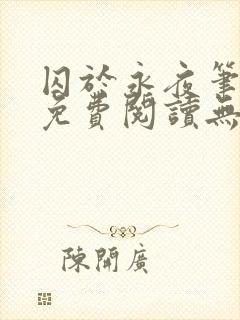 囚於永夜筆
免費閱讀無
陳開廣